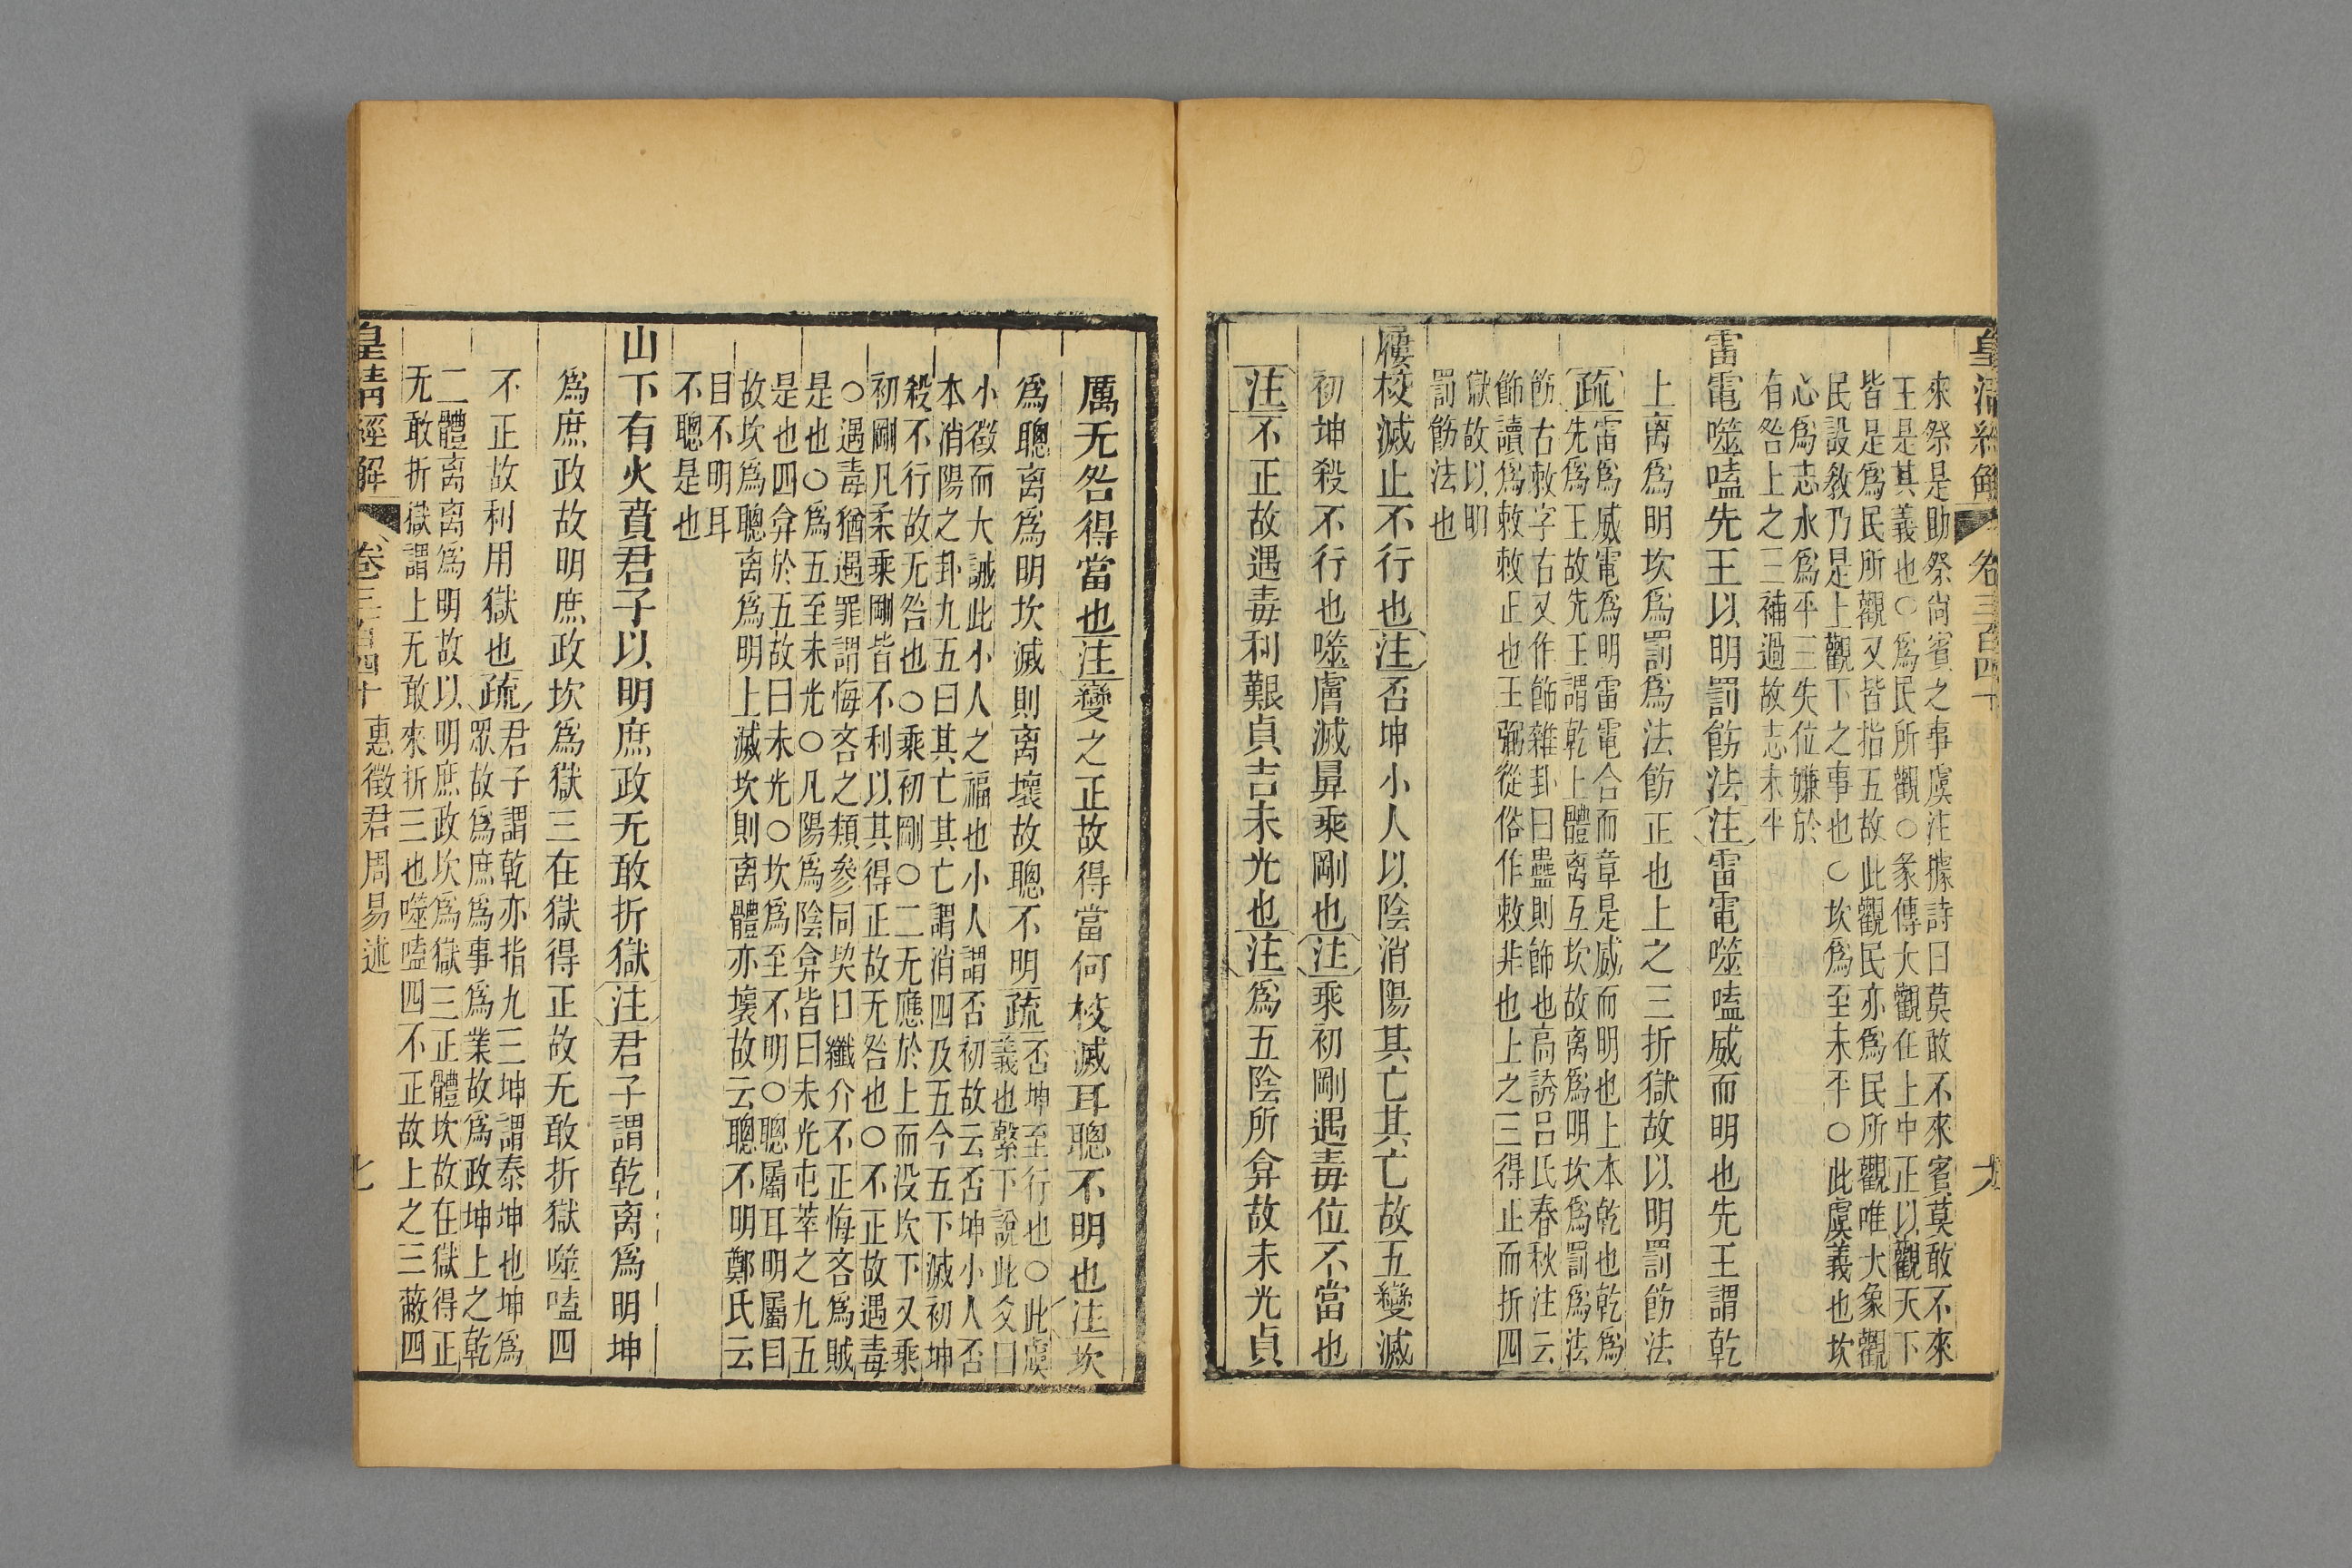 來祭是助祭尚賓之事虞注據詩曰莫敢不來賓莫敢不來
王是其義也○爲民所觀○彖傳大觀在上中正以觀天下
皆是爲民所觀又皆指五故此觀民亦爲民所觀唯大象觀
民設敎乃是上觀下之事也○坎爲至未平○此虞義也坎
心爲志水爲平三失位嫌於
有咎上之三補過故志未平
雷電噬嗑先王以明罰飭法注雷電噬嗑威而明也先王謂乾
上离爲明坎爲罰爲法飭正也上之三折獄故以明罰飭法
疏雷爲威電爲明雷電合而章是威而明也上本乾也乾爲
先爲王故先王謂乾上體离互坎故离爲明坎爲罰爲法
飭古敕字古又作飾雜卦曰蠱則飾也高誘呂氏春秋注云
飾讀爲敕敕正也王弼從俗作敕非也上之三得正而折四
獄故以明
罰飭法也
屨校滅止不行也注否坤小人以陰消陽其亡其亡故五變滅
初坤殺不行也噬膚滅鼻乘剛也注乘初剛遇毒位不當也
注不正故遇毒利艱貞吉未光也注爲五陰所弇故未光貞
厲无咎得當也注變之正故得當何校滅耳聰不明也注坎
爲聰离爲明坎滅則离壞故聰不明疏否坤至行也○此虞
義也繫下說此爻曰
小徵而大誡此小人之福也小人謂否初故云否坤小人否
本消陽之卦九五曰其亡其亡謂消四及五今五下滅初坤
殺不行故无咎也○乘初剛○二无應於上而没坎下又乘
初剛凡柔乘剛皆不利以其得正故无咎也○不正故遇毒
○遇毒猶遇罪謂悔吝之類參同契曰纖介不正悔吝爲賊
是也○爲五至未光○凡陽爲陰弇皆曰未光屯萃之九五
是也四弇於五故曰未光○坎爲至不明○聰屬耳明屬目
故坎爲聰离爲明上滅坎則离體亦壞故云聰不明鄭氏云
目不明耳
不聰是也
山下有火賁君子以明庶政无敢折獄注君子謂乾离爲明坤
爲庶政故明庶政坎爲獄三在獄得正故无敢折獄噬嗑四
不正故利用獄也疏君子謂乾亦指九三坤謂泰坤也坤爲
眾故爲庶爲事爲業故爲政坤上之乾
二體离离爲明故以明庶政坎爲獄三正體坎故在獄得正
无敢折獄謂上无敢來折三也噬嗑四不正故上之三蔽四
皇清經解 卷三百四十 惠徵君周易述